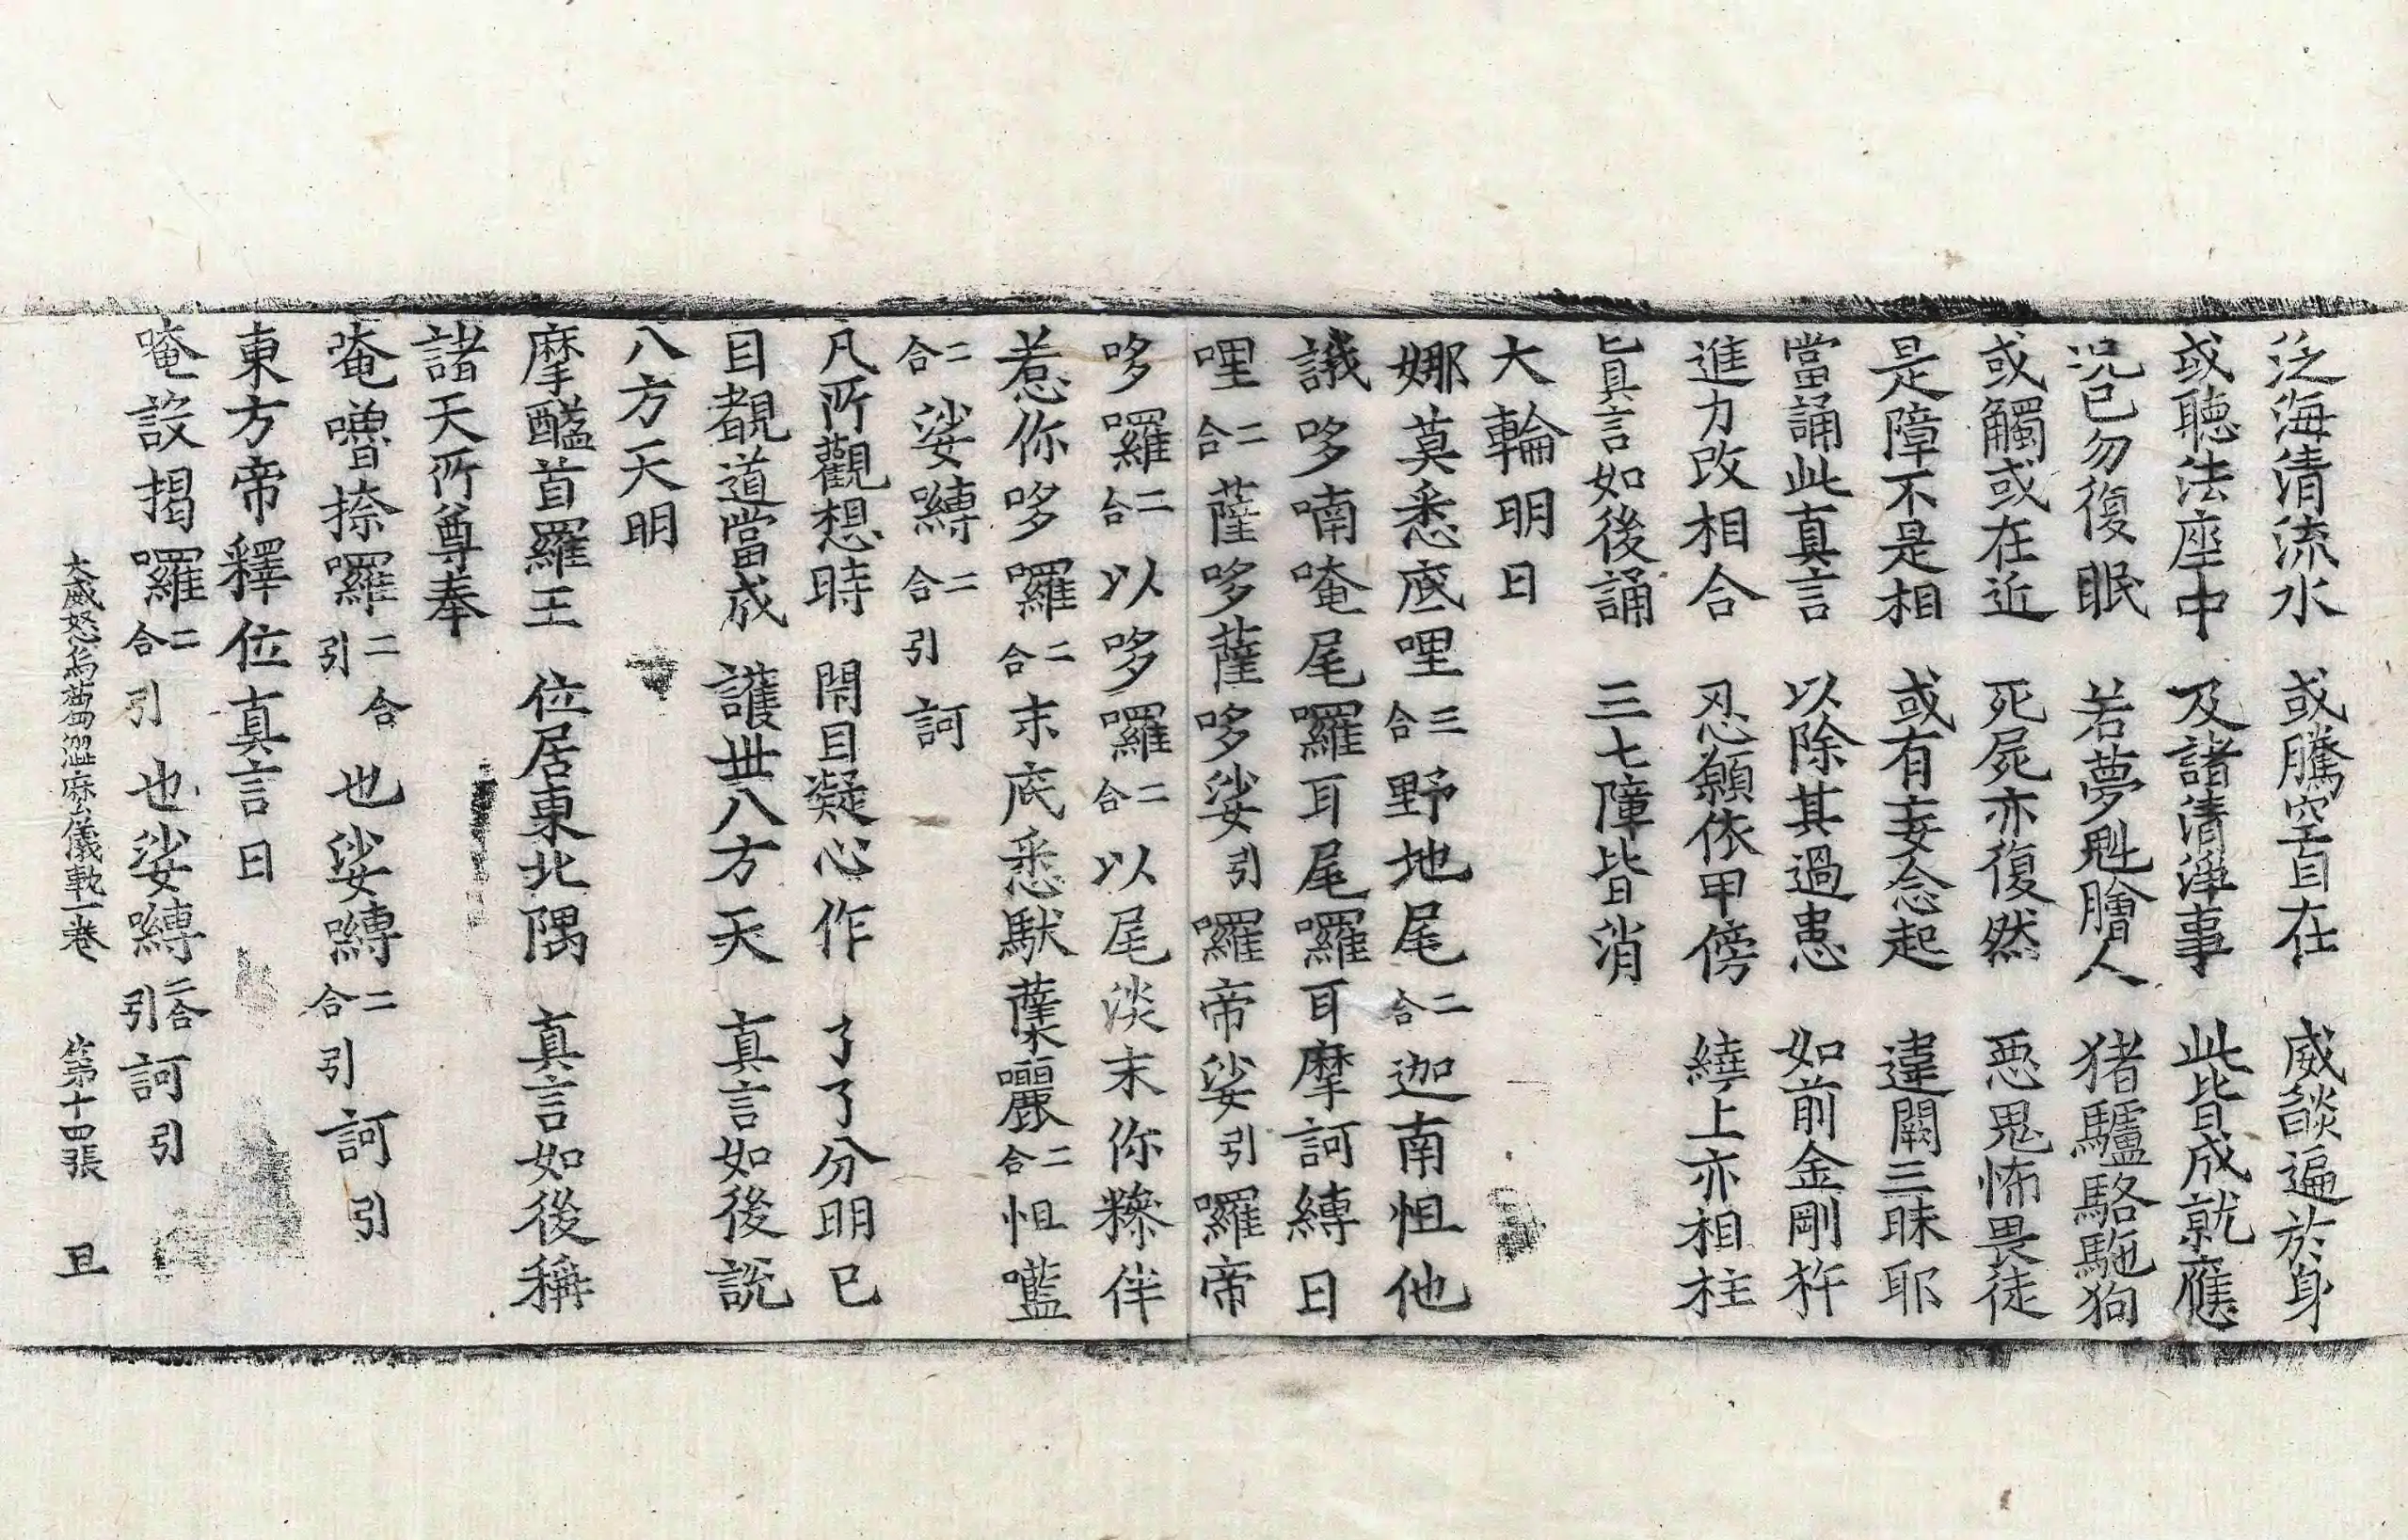 泛海清流水 或騰空自在 威燄遍於身
或聽法座中 及諸清淨事 此皆成就應
況已勿復眠 若夢魁膾人 猪驢駱駞狗
或觸或在近 死屍亦復然 惡鬼怖畏徒
是障不是相 或有妄念起 違闕三昧耶
當誦此真言 以除其過患 如前金剛杵
進力改相合 忍願依甲傍 繞上亦相柱
真言如後誦 三七障皆消
大輪明曰
娜莫悉底哩三合野地尾二合迦南怛他
誐哆喃唵尾囉耳尾囉耳摩訶縛日
哩二合薩哆薩哆娑引囉帝娑引囉帝
哆囉二合以哆囉二合以尾淡末你糝伴
惹你哆囉二合末底悉馱蘖囇二合怛㘕
二合娑嚩二合引訶
凡所觀想時 閇目凝心作 了了分明已
目覩道當成 護世八方天 真言如後說
八方天明
摩醯首羅王 位居東北隅 真言如後稱
諸天所尊奉
菴嚕捺囉二合引也娑嚩二合引訶引
東方帝釋位真言曰
唵設揭囉二合引也娑嚩二合引訶引
大威怒烏蒭澀麽儀軌一卷 第十四張 且